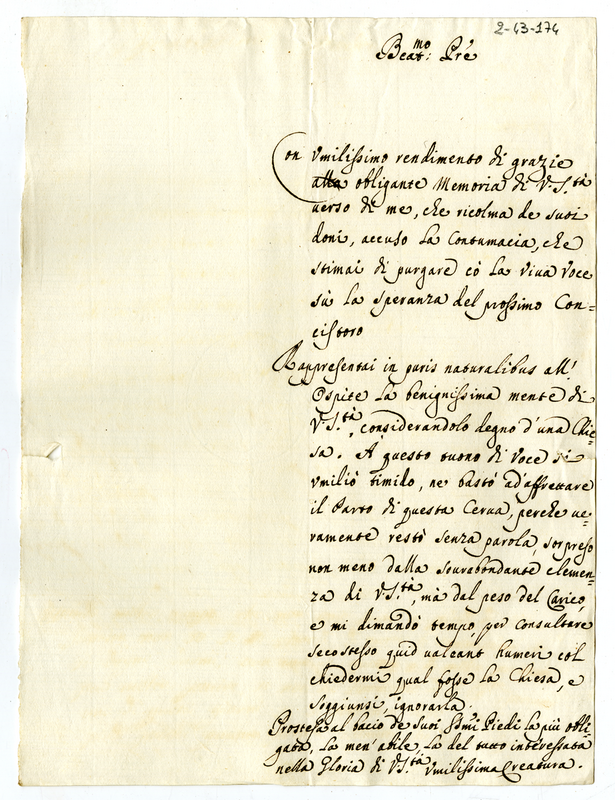 2-43-174
Beat:mo Pre
Con Vmilissimo rendimento di grazie
alla obligante Memoria di V.S.tà
verso di me, che ricolma de suoi
doni, accuso la Contumacia, che
stimai di purgare cō la viva Voce
sù la speranza del prossimo Con=
cistoro
Rappresentai in puris naturalibus all'
Ospite la benignissima mente di
V.S.tà, considerandolo degno d'una Chie=
sa. A questo tuono di Voce si
vmiliò timido, ne bastò ad affrettare
il Parto di questa Cerva, perche ve=
ramente restò senza parola, sorpreso
non meno dalla sovrabondante clemen=
za di V.S.tà, mà dal peso del Carico,
e mi dimandò tempo, per consultare
secostesso quid valeant humeri col
chiedermi qual fosse la Chiesa, e
soggiunsi, ignorarla.
Prostesa al bacio de suoi S̃s̃mi Piedi la più obli=
gata, la men'abile, la del tutto interessata
nella Gloria di V.S.tà Vmilissima Creatura.